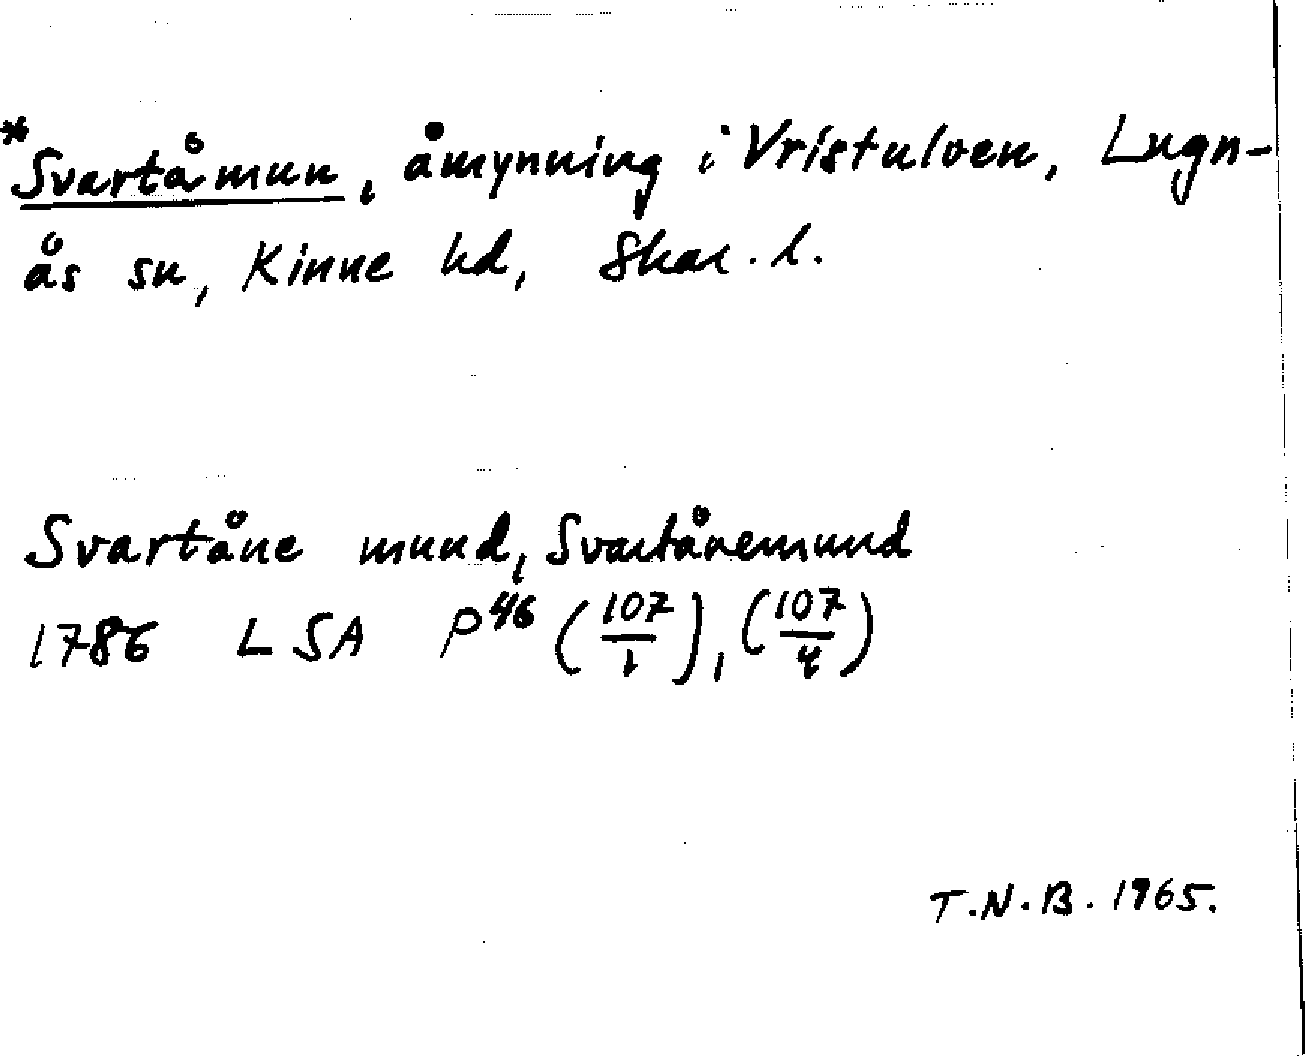 *Svartåmun, åmynning i Vristulven, Lugn-
ås sn, Kinne hd, Skar. l.
Svartåne mund, Svartånemund
1786 LSA P46 (107/1), (107/4)
T.N.B. 1965.